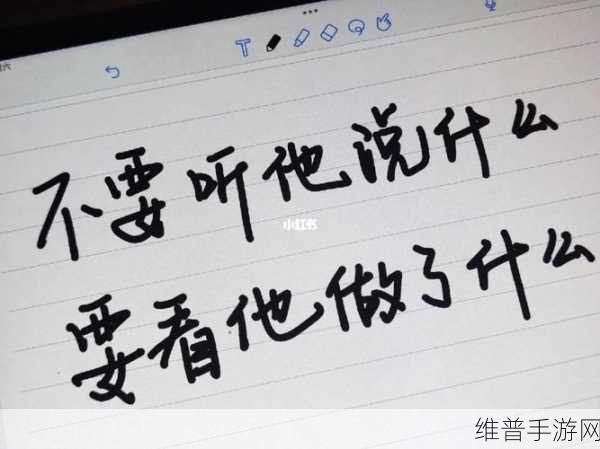 不要听他说什么
小红书
要看他做了什么
维普手游网